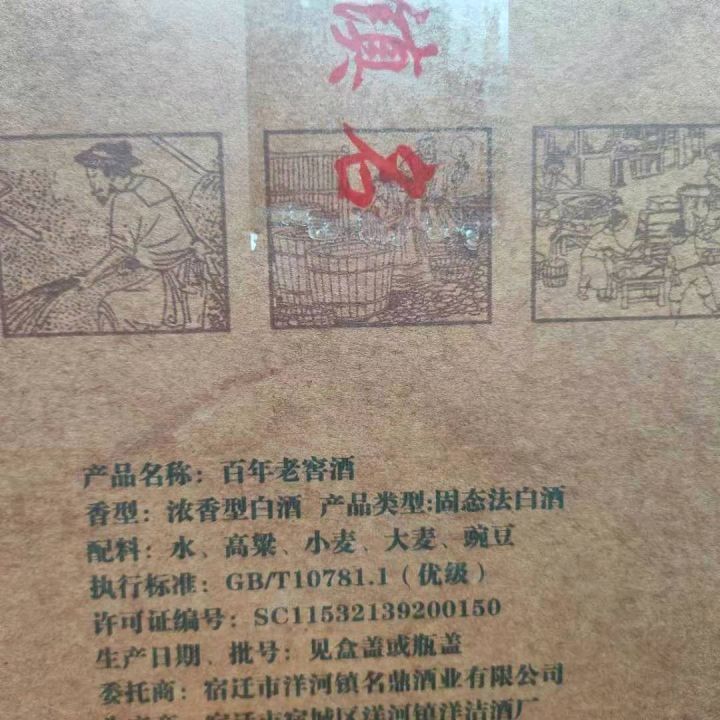 镇
名
产品名称：百年老窖酒
香型：浓香型白酒 产品类型:固态法白酒
配料：水、高粱、小麦、大麦、豌豆
执行标准：GB/T10781.1（优级）
许可证编号：SC11532139200150
生产日期、批号：见盒盖或瓶盖
委托商：宿迁市洋河镇名鼎酒业有限公司
宿迁市宿城区洋河镇洋洁酒厂